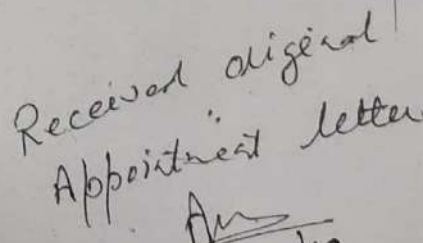 Received original
Appointment letter